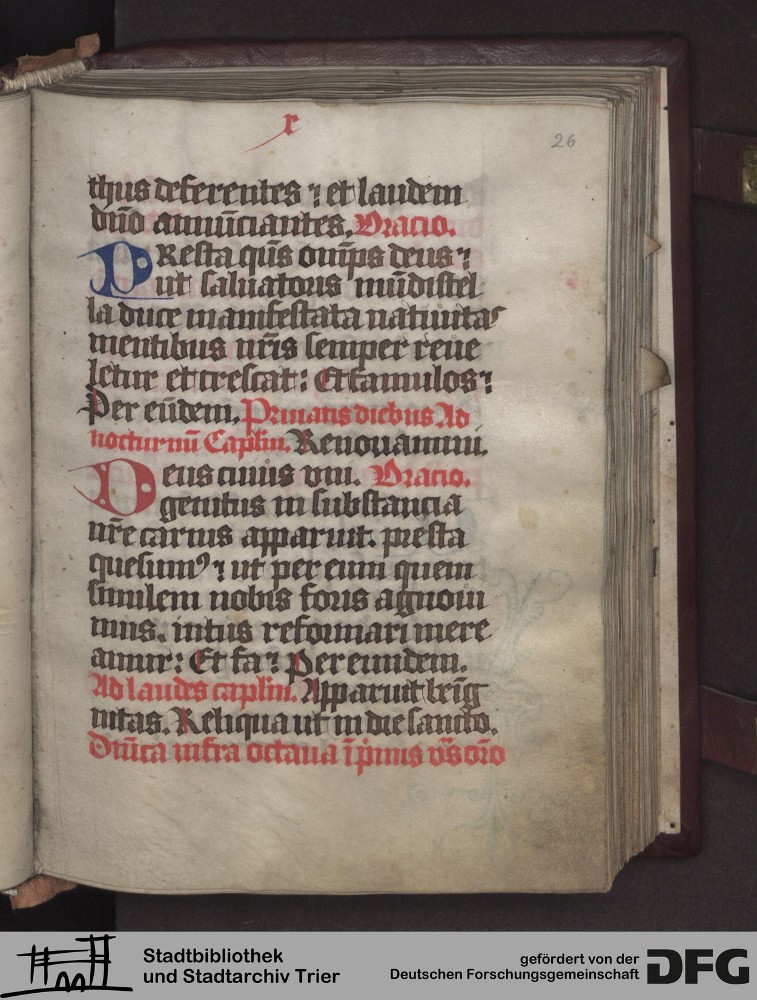 r
26
thus deferentes ⁊ et laudem
dn̄o annūciantes. Oracio.
PResta qūs om̄ps deus ⁊
ut saluatoris mūdi stel
la duce manifestata natiuitas
mentibus nr̄is semper reue
letur et crescat: Et famulos ⁊
Per eūdem. Priuatis diebus Ad
nocturnū Caplm̄. Renouamini.
Deus cuius vni. Oracio.
genitus in substancia
nr̄e carnis apparuit. presta
quesumꝰ ⁊ ut per eum quem
similem nobis foris agnoui
mus. intus reformari mere
amur: Et fa ⁊ Per eundem.
Ad laudes caplm̄. Apparuit beīg
nitas. Reliqua ut in die sancto.
Dn̄ica infra octaua ī pͥmis vs̄ or̄o
Stadtbibliothek
und Stadtarchiv Trier
gefördert von der
Deutschen Forschungsgemeinschaft
DFG